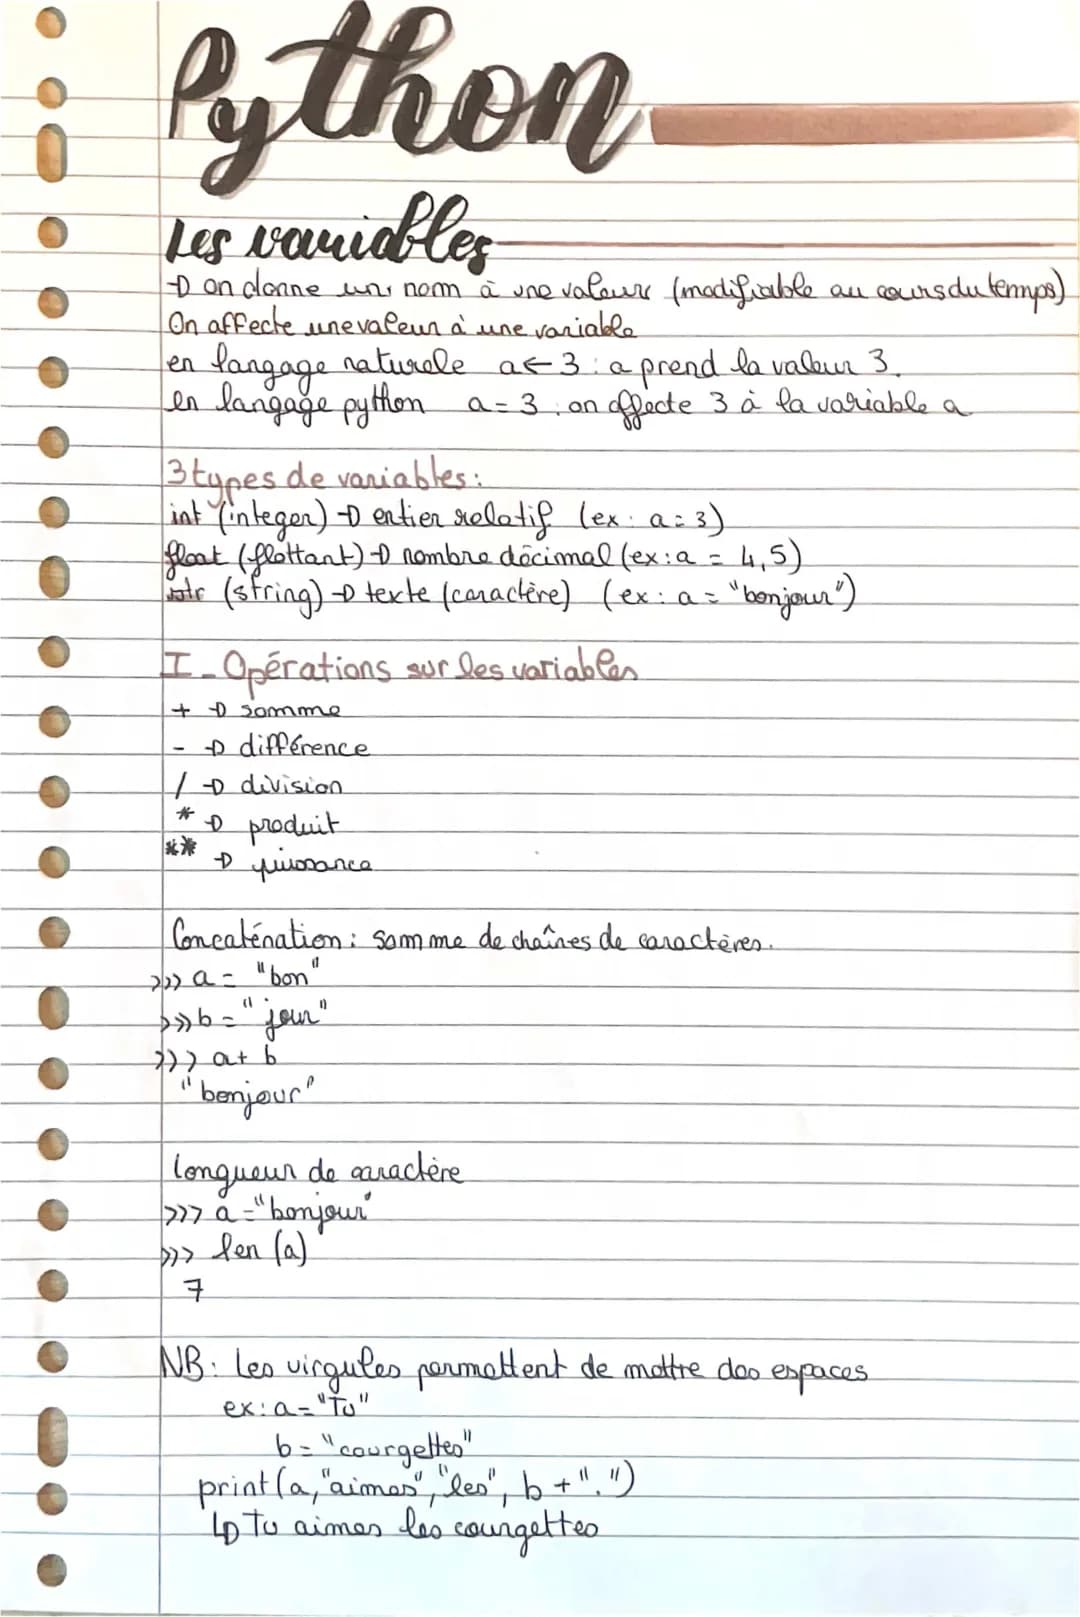 Python
Les variables
→ on donne un nom à une valeur (modifiable au cours du temps)
On affecte une valeur à une variable
en langage naturele a ← 3 : a prend la valeur 3.
en langage python a = 3 : on affecte 3 à la variable a
3 types de variables :
int (integer) → entier relatif (ex : a = 3)
float (flottant) → nombre décimal (ex : a = 4,5)
str (string) → texte (caractère) (ex : a = "bonjour")
I - Opérations sur les variables
+ → somme
- → différence
/ → division
* → produit
** → puissance
Concaténation : somme de chaînes de caractères.
>>> a = "bon"
>>> b = "jour"
>>> a + b
"bonjour"
Longueur de caractère
>>> a = "bonjour"
>>> len (a)
7
NB : Les virgules permettent de mettre des espaces
ex : a = "Tu"
b = "courgettes"
print (a, "aimes", "les", b + ".")
↳ Tu aimes les courgettes